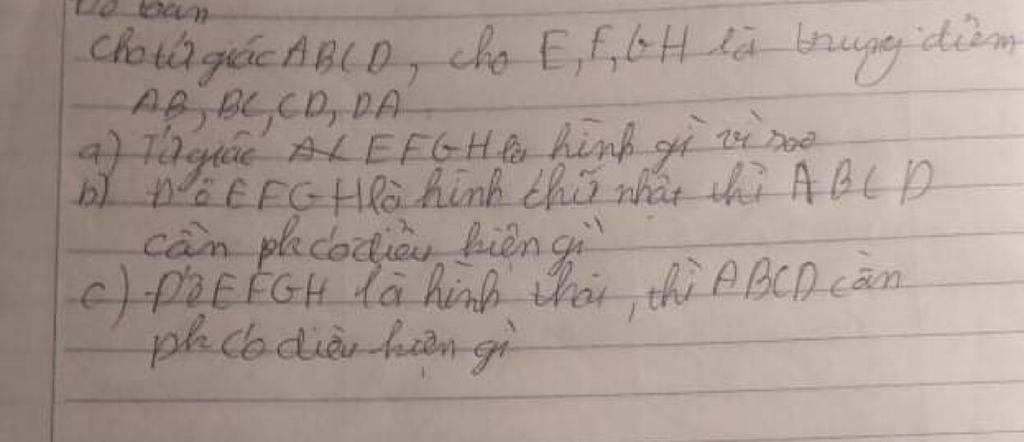 Cho tứ giác ABCD, cho E, F, G H là trung điểm
AB, BC, CD, DA
a) Tứ giác EFGH là hình gì vì sao
b) Để EFGH là hình chữ nhật thì ABCD
cần ph có điều kiện gì
c) Để EFGH là hình thoi, thì ABCD cần
ph có điều kiện gì